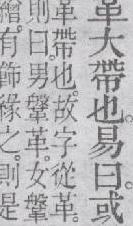 革大帶也易曰或
革帶也故字從革
則曰男鞶革女鞶
有飾緣之則是